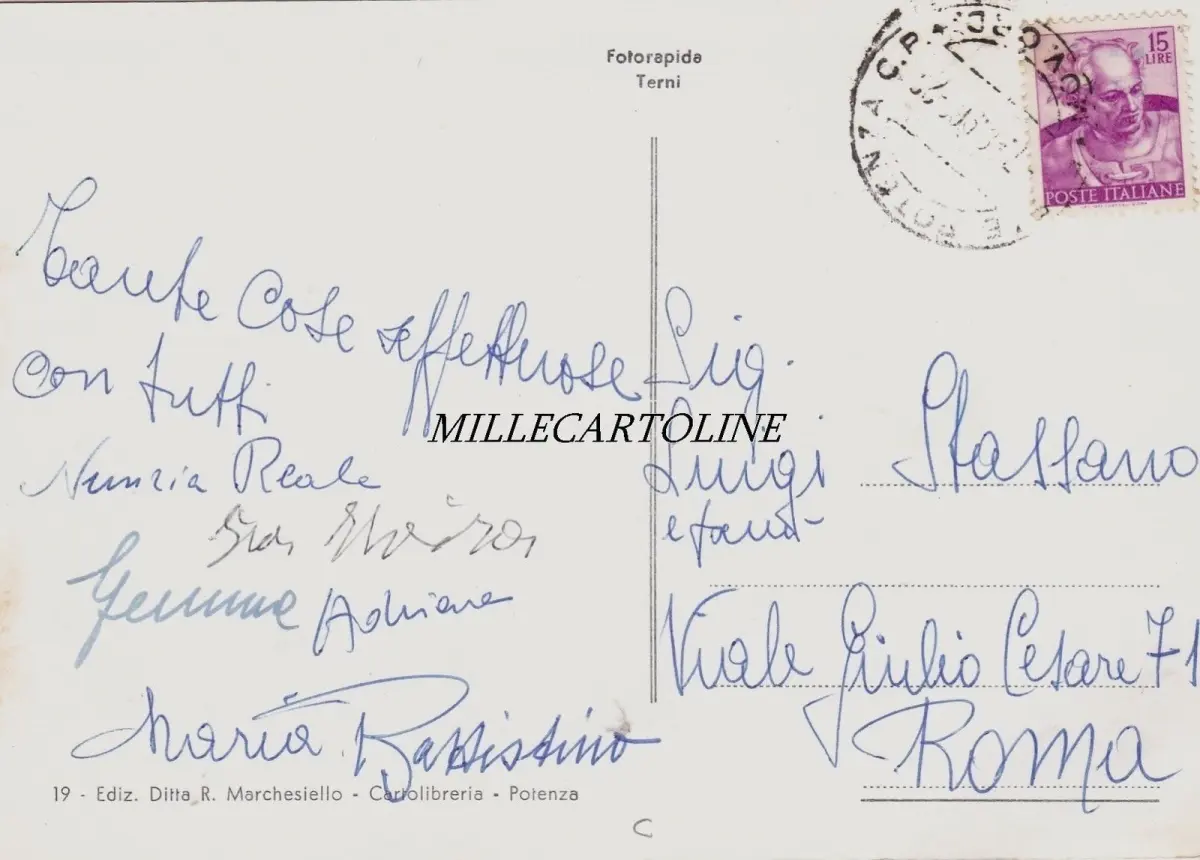 Fotorapida
Terni
POTENZA C.P.
15
LIRE
POSTE ITALIANE
Tante Cose affettuose
con tutti
Nunzia Reale
Gemma Adriana
Maria Battistino
Sig.
Luigi Stassano
e fam.
Viale Giulio Cesare 71
Roma
MILLECARTOLINE
19 - Ediz. Ditta R. Marchesiello - Cartolibreria - Potenza
C